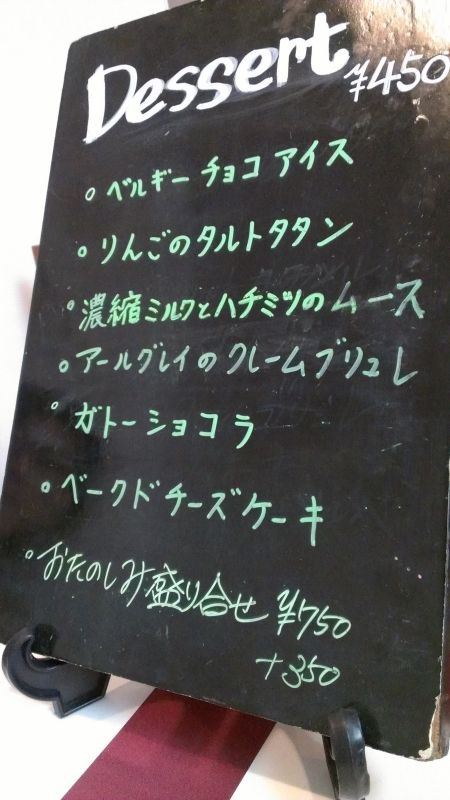 Dessert ¥450
。ベルギーチョコアイス
。りんごのタルトタタン
。濃縮ミルクとハチミツのムース
。アールグレイのクレームブリュレ
。ガトーショコラ
。ベークドチーズケーキ
。おたのしみ盛り合せ ¥750
+350